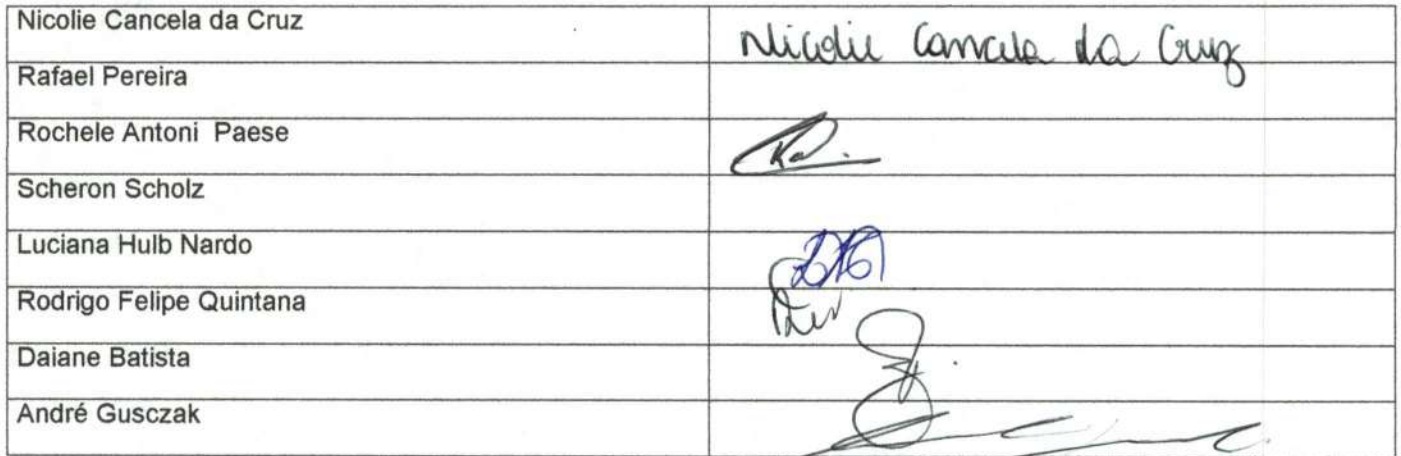 Nicolie Cancela da Cruz
Nicolie Cancela da Cruz
Rafael Pereira
Rochele Antoni Paese
Scheron Scholz
Luciana Hulb Nardo
Rodrigo Felipe Quintana
Daiane Batista
André Gusczak